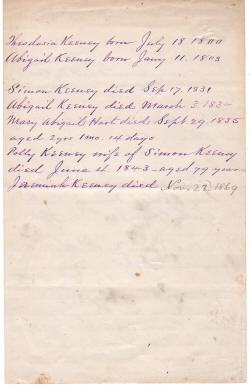 Theodosia Keeney born July 18 1800
Abigail Keeney born Jany 11. 1803
Simon Keeney died Sep. 17. 1831
Abigail Keeney died March 3. 183-
Mary Abigail Hart died Sept 29. 1835
aged 2yrs 1mo. 14 days
Polly Keeney wife of Simon Keeney
died June 4. 1843 - aged 79 years
Jeremiah Keeney died Nov. 22 1869